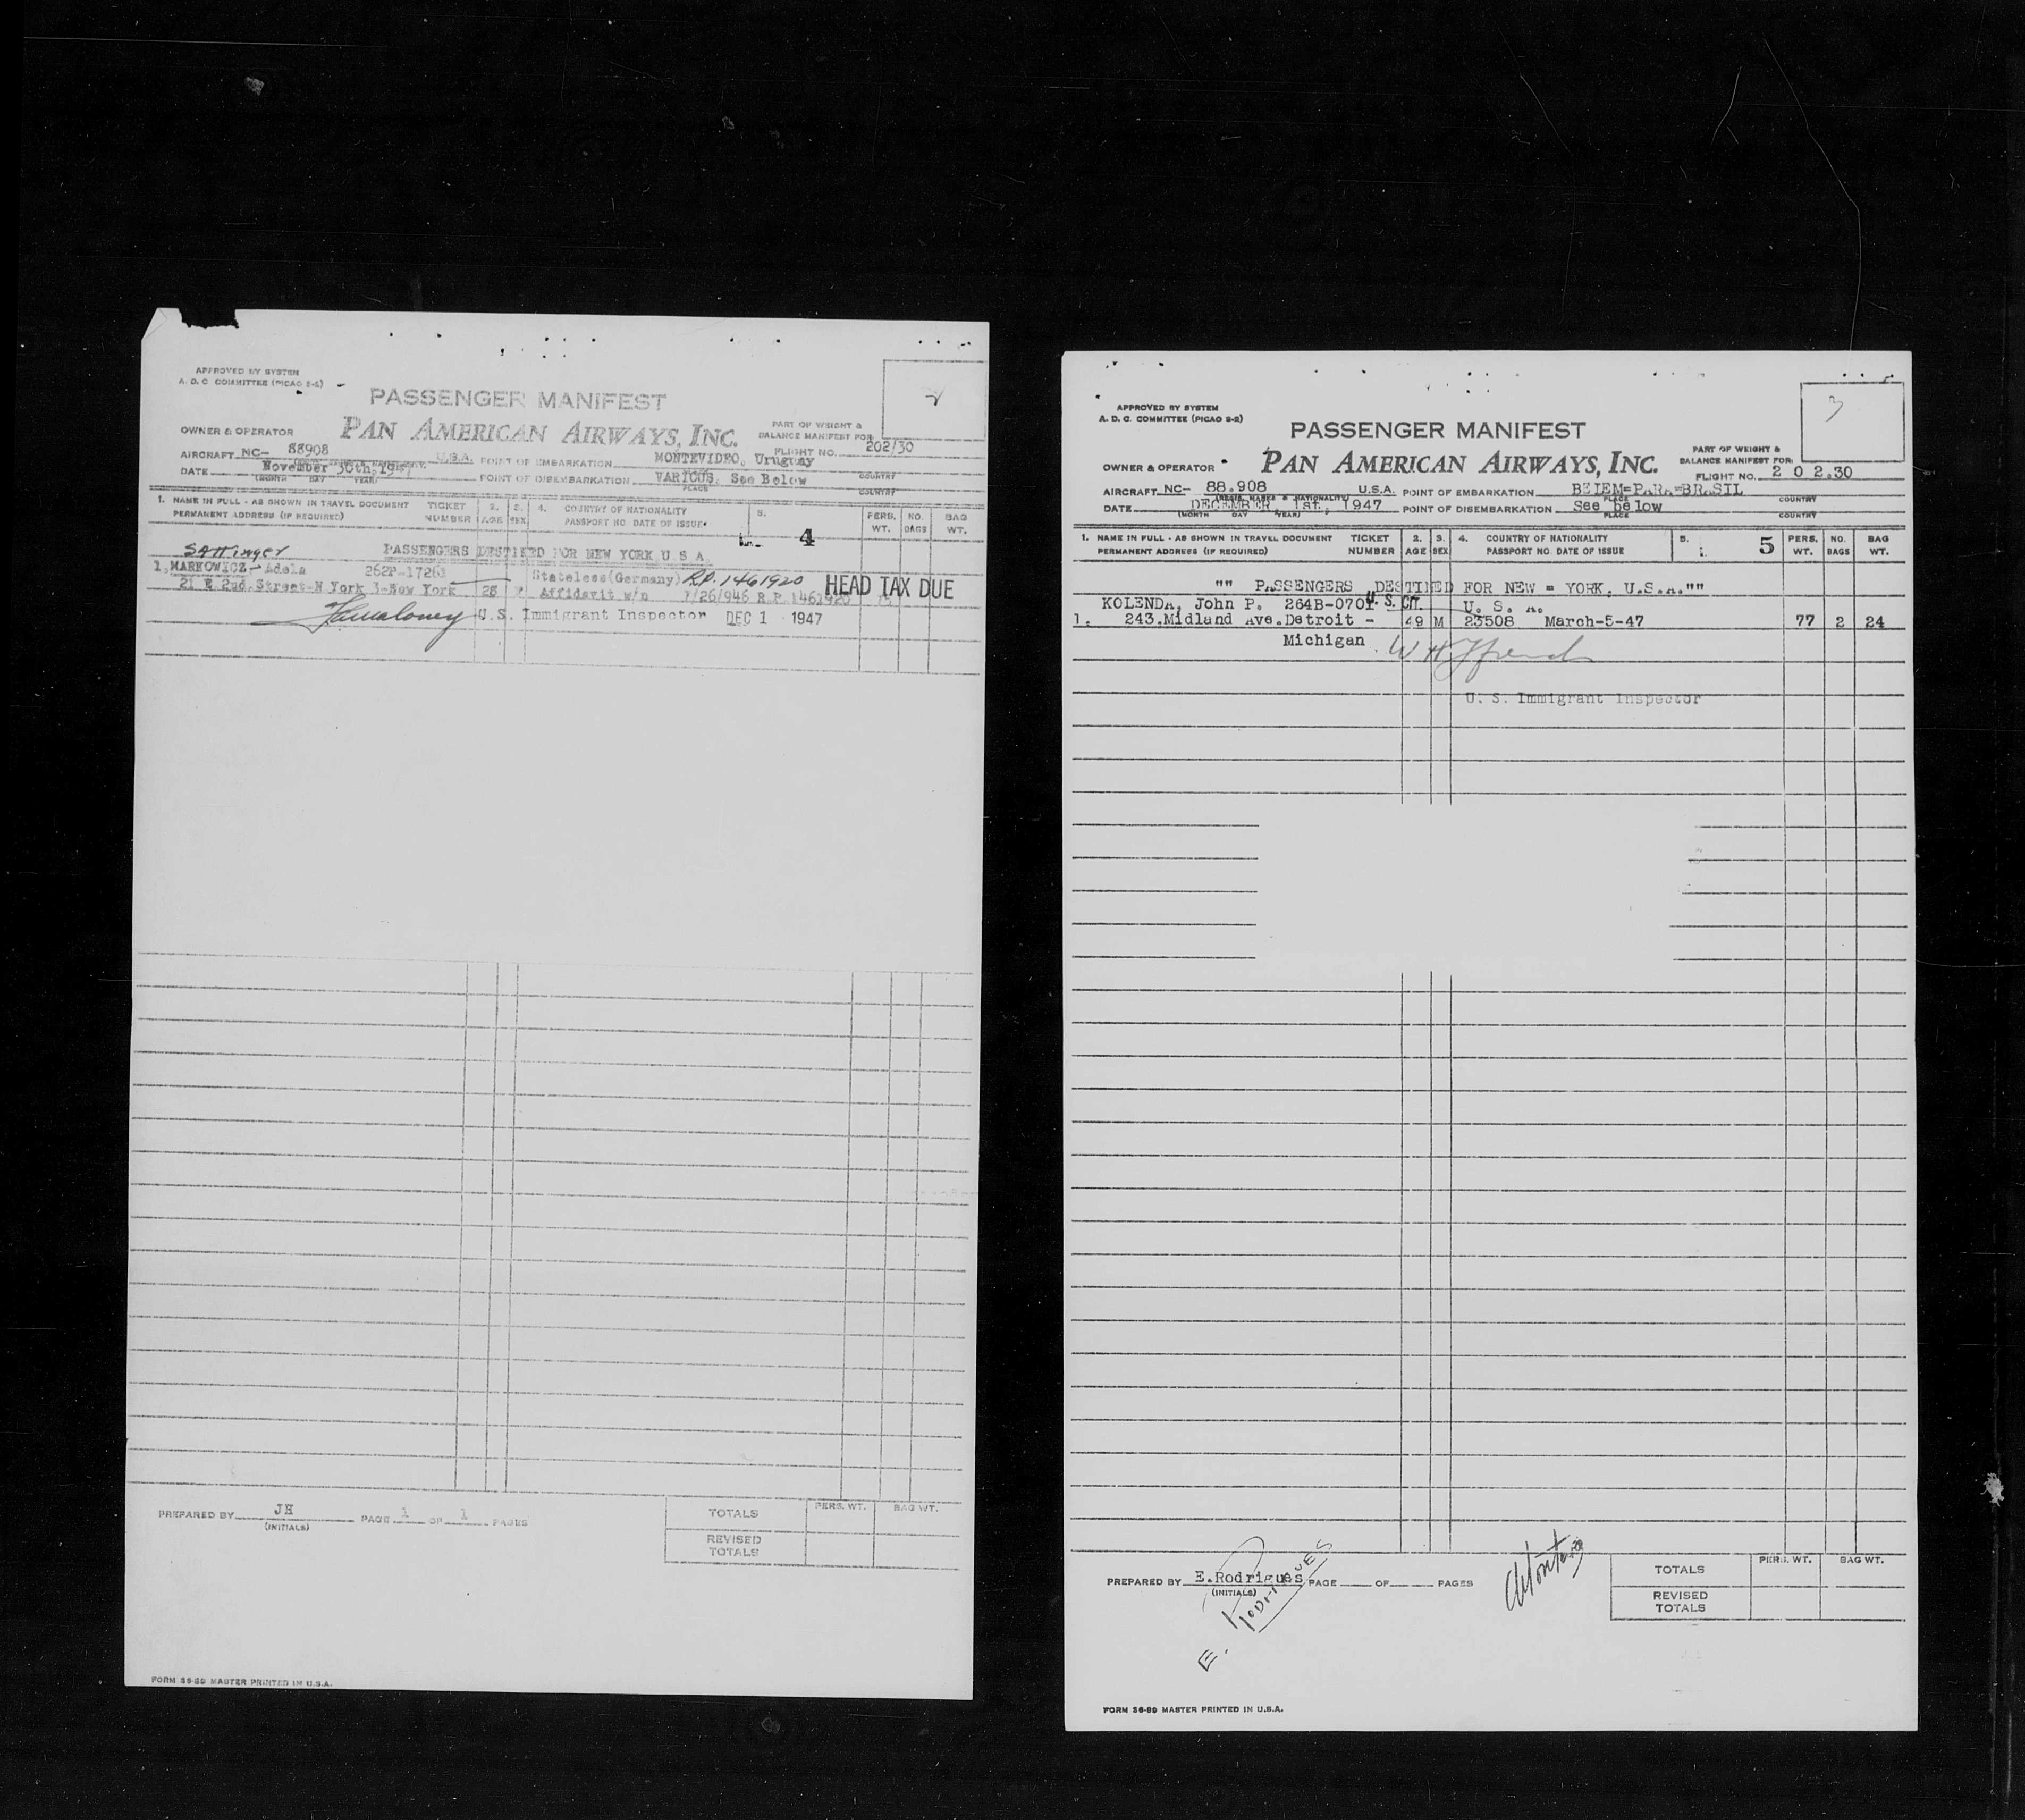 APPROVED BY SYSTEM
A. D. C COMMITTEE (PICAO 2-2)
PASSENGER MANIFEST
OWNER & OPERATOR PAN AMERICAN AIRWAYS, INC.
PART OF WEIGHT &
BALANCE MANIFEST FOR
FLIGHT NO. 202/30
AIRCRAFT NC- 88908 U.S.A. POINT OF EMBARKATION MONTEVIDEO, Uruguay
DATE November 30th, 1947 POINT OF DISEMBARKATION VARIOUS, See Below
(MONTH DAY YEAR) PLACE COUNTRY
COUNTRY
1. NAME IN FULL - AS SHOWN IN TRAVEL DOCUMENT TICKET 2. 3. 4. COUNTRY OF NATIONALITY 5. PERS. NO. BAG
PERMANENT ADDRESS (IF REQUIRED) NUMBER AGE SEX PASSPORT NO DATE OF ISSUE 4 WT. BAGS WT.
SATTinger PASSENGERS DESTINED FOR NEW YORK U.S.A
1. MARKOWICZ- Adela 262P-17261 Stateless(Germany) R.P. 1461920 HEAD TAX DUE
21 E 2nd. Street-N York 3-New York 28 F Affidavit w/n 7/26/946 R.P. 1461920
U.S. Immigrant Inspector DEC 1 1947
PREPARED BY JH PAGE 1 OF 1 PAGES
(INITIALS)
TOTALS PERS. WT. BAG WT.
REVISED
TOTALS
FORM 36-89 MASTER PRINTED IN U.S.A.
3
APPROVED BY SYSTEM
A. D. C. COMMITTEE (PICAO 2-2)
PASSENGER MANIFEST
OWNER & OPERATOR PAN AMERICAN AIRWAYS, INC.
PART OF WEIGHT &
BALANCE MANIFEST FOR
FLIGHT NO. 2 0 2.30
AIRCRAFT NC- 88.908 U.S.A. POINT OF EMBARKATION BEIEM=PARA=BRASIL
(REGIS. MARKS & NATIONALITY) PLACE COUNTRY
DATE DECEMBER 1st, 1947 POINT OF DISEMBARKATION See below
(MONTH DAY YEAR) PLACE COUNTRY
1. NAME IN FULL - AS SHOWN IN TRAVEL DOCUMENT TICKET 2. 3. 4. COUNTRY OF NATIONALITY 5. PERS. NO. BAG
PERMANENT ADDRESS (IF REQUIRED) NUMBER AGE SEX PASSPORT NO. DATE OF ISSUE 5 WT. BAGS WT.
"" PASSENGERS DESTINED FOR NEW = YORK, U.S.A.""
KOLENDA, John P. 264B-0701 U. S. CIT. U. S. A.
1. 243.Midland Ave.Detroit - 49 M 23508 March-5-47 77 2 24
Michigan
U. S. Immigrant Inspector
PREPARED BY E.Rodrigues PAGE OF PAGES
(INITIALS)
E. RODRIGUES
TOTALS PERS. WT. BAG WT.
REVISED
TOTALS
FORM 36-89 MASTER PRINTED IN U.S.A.